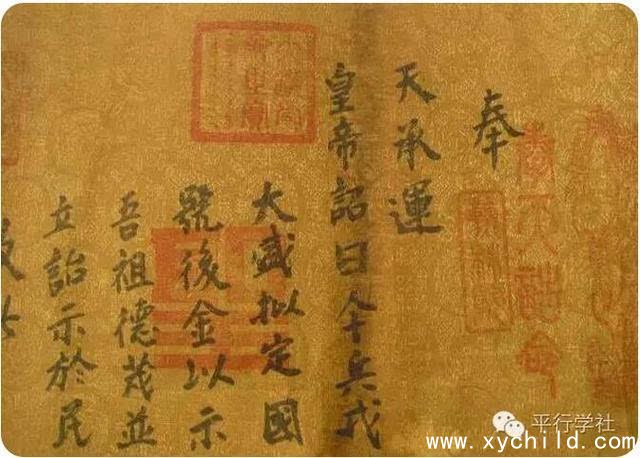 奉
天承運
皇帝詔曰今兵戎
大盛拟定國
號後金以示
吾祖德茂並
立詔示於民
平行学社
www.xychild.com